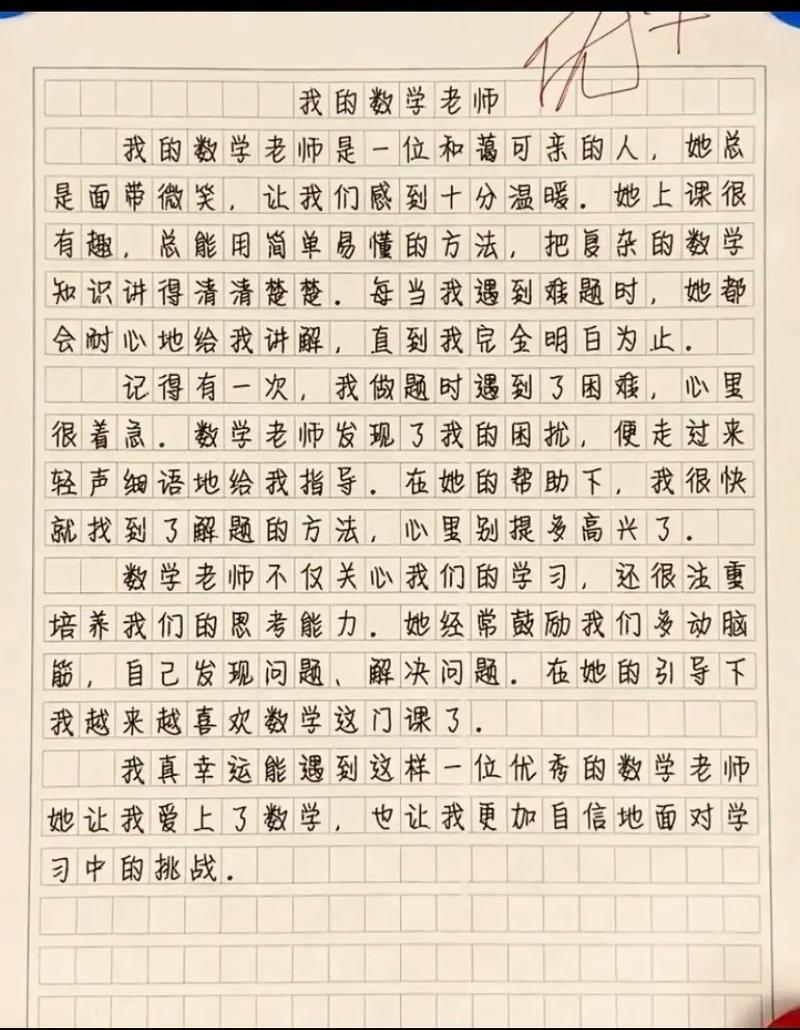 优+
我的数学老师
我的数学老师是一位和蔼可亲的人，她总
是面带微笑，让我们感到十分温暖．她上课很
有趣，总能用简单易懂的方法，把复杂的数学
知识讲得清清楚楚．每当我遇到难题时，她都
会耐心地给我讲解，直到我完全明白为止．
记得有一次，我做题时遇到了困难，心里
很着急．数学老师发现了我的困扰，便走过来
轻声细语地给我指导．在她的帮助下，我很快
就找到了解题的方法，心里别提多高兴了．
数学老师不仅关心我们的学习，还很注重
培养我们的思考能力．她经常鼓励我们多动脑
筋，自己发现问题、解决问题．在她的引导下
我越来越喜欢数学这门课了．
我真幸运能遇到这样一位优秀的数学老师
她让我爱上了数学，也让我更加自信地面对学
习中的挑战．